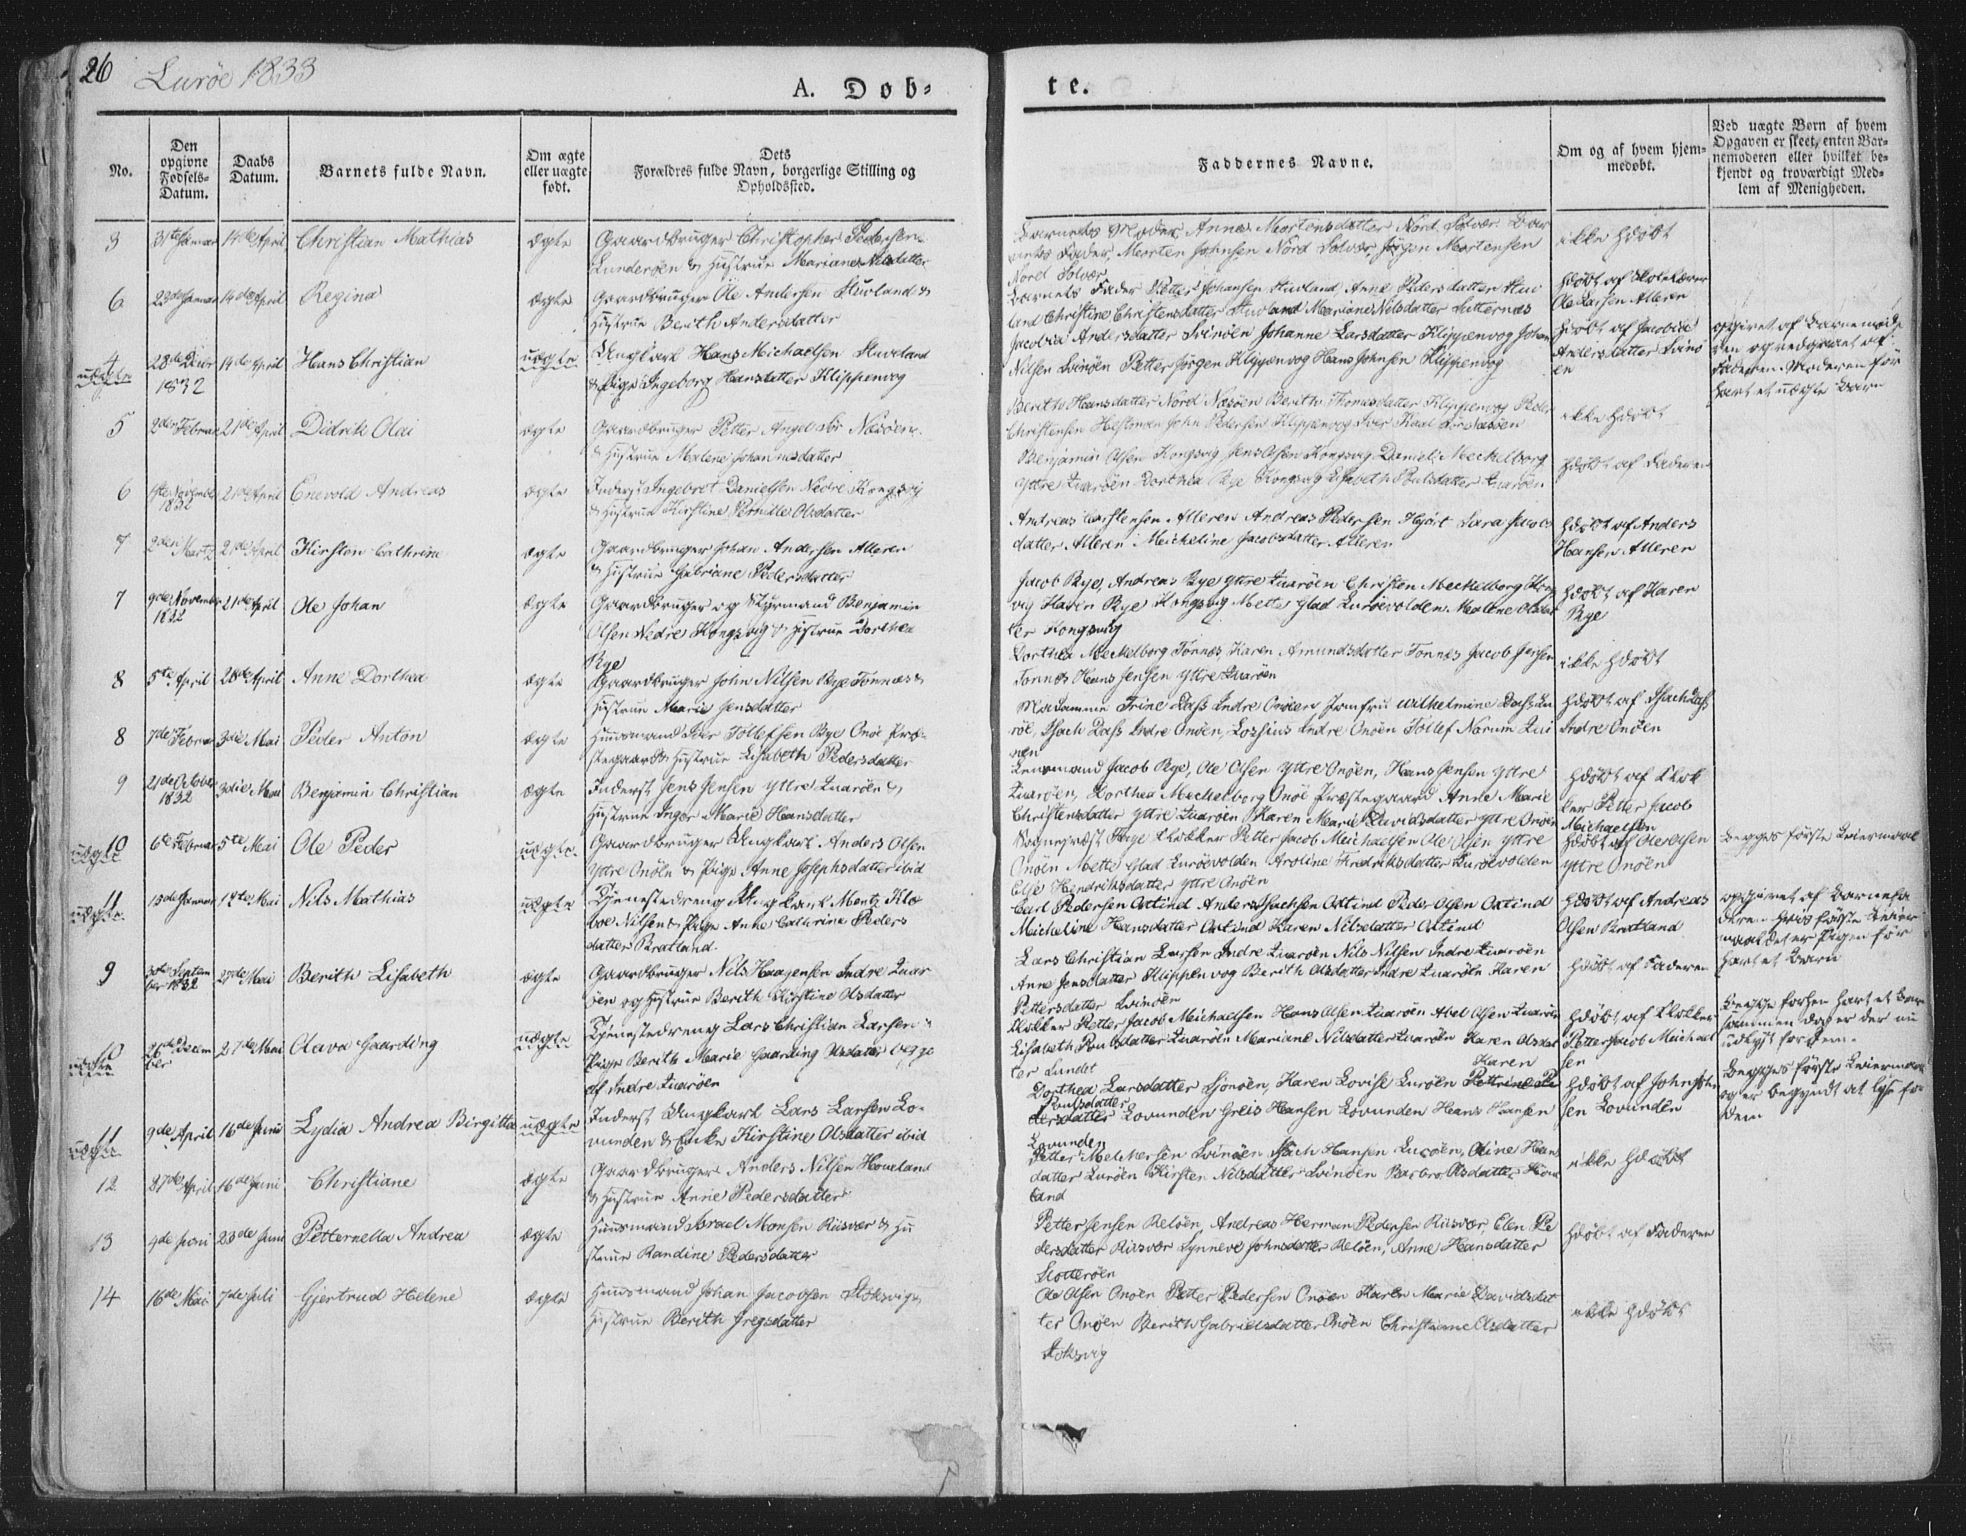 26 Lurøe 1833
A. Døb-
te.
No.
Den opgivne Fødsels-Datum.
Daabs Datum.
Barnets fulde Navn.
Om ægte eller uægte født.
Dets Forældres fulde Navn, borgerlige Stilling og Opholdssted.
Faddernes Navne.
Om og af hvem hjemmedøbt.
Ved uægte Børn af hvem Opgaven er skeet, enten Barnemoderen eller hvilket bekjendt og troværdigt Medlem af Menigheden.
3 31te Januar 14de April Christian Mathias ægte Gaardbruger Christopher Pedersen
Lunderøen & Hustrue Mariane Nilsdatter
Barnets Moder, Anne Mortensdatter Nord Solvær Bar
nets Fader, Morten Johnsen Nord Solvær, Jørgen Mortensen
Nord Solvær
ikke hdøbt
6 23de Januar 14de April Regina ægte Gaardbruger Ole Andersen Stuvland &
Hustrue Berith Andersdatter
Barnets Fader Petter Johansen Stuvland, Anne Pedersdatter Stuv
land Christine Christensdatter Stuvland Mariane Nilsdatter
hdøbt af Skolelærer
Ole Larsen Alleren
4 uægte 28de Decbr 1832 14de April Hans Christian uægte Ungkarl Hans Michaelsen Stuveland
& Pige Ingeborg Hansdatter Klippenvog
Jacobia Andersdatter Svinøen Johanne Larsdatter Klippenvog Johan
Nilsen Svinøen Petter Jørgen Klippenvog Hans Johnsen Klippenvog
hdøbt af Jacobia
Andersdatter Svinø
en
opgivet af Barnemode
ren og vedgaaet af
Faderen. Moderen før
havt et uægte Barn
5 2den Februar 21de April Didrik Olai ægte Gaardbruger Petter Angel Sør Næsøen
& Hustrue Malene Johannesdatter
Berith Hansdatter Nord Næsøen Berith Thomasdatter Klippenvog Peder
Christensen Hestmon John Pedersen Klippenvog Iver Kaal Sør Næsøen
ikke hdøbt
6 1832 21de April Enevold Andreas ægte Inderst Ingebret Danielsen Nedre Kongsvig
& Hustrue Kirstine Pernille Olsdatter
Benjamin Olsen Kongsvig Jens Olsen Kongsvig Daniel Meckelborg
Yttre Quarøen Dorthea Rye Kongsvig Elisabeth Poulsdatter Quarøen
hdøbt af Faderen
7 2den Martz 21de April Kirsten Cathrine ægte Gaardbruger Johan Andersen Alleren
& Hustrue Gabriane Pedersdatter
Andreas Carstensen Alleren Andreas Pedersen Hjort Sara Jacobs
datter Alleren Micheline Jacobsdatter Alleren
hdøbt af Anders
Hansen Alleren
7 9de November 1832 21de April Ole Johan ægte Gaardbruger og Styrmand Benjamin
Olsen Nedre Kongsvig & Hustrue Dorthea
Rye
Jacob Rye, Andreas Rye Yttre Quarøen Christen Meckelborg Kongs
vig Karen Rye Kongsvig Mette Glad Lurøevolden Malene Olsdat
ter Kongsvig
hdøbt af Karen
Rye
8 5te April 28de April Anne Dorthea ægte Gaardbruger John Nilsen Rye Tonnæs &
Hustrue Marie Jensdatter
Dorthea Meckelborg Tonnæs Karen Amundsdatter Tonnæs Jacob Jensen
Tonnæs Hans Jensen Yttre Quarøen
ikke hdøbt
8 7de Februar 3die Mai Peder Anton ægte Huusmand Peder Tollefsen Rye Onøe Præ-
stegaard & Hustrue Lisabeth Pedersdatter
Madamme Trine Dass Indre Onøen Jomfru Wilhelmine Dass Lu
røe, Isach Dass Indre Onøen, Lossius Indre Onøen Tollef Narum Qua
røen
hdøbt af Isach Dass
Indre Onøen
9 21de October 1832 3die Mai Benjamin Christian ægte Inderst Jens Jensen Yttre Quarøen &
Hustrue Inger Marie Hansdatter
Lensmand Jacob Rye, Ole Olsen Yttre Onøen, Hans Jensen Yttre
Quarøen, Dorthea Meckelborg Onøe Præstegaard Anne Marie
Christensdatter Yttre Quarøen Karen Marie Davidsdatter Yttre Onøen
hdøbt af Klok
ker Petter Jacob
Michaelsen
10 uægte 6te Februar 5te Mai Ole Peder uægte Gaardbruger Ungkarl Anders Olsen
Yttre Onøen & Pige Anne Josephsdatter ibid
Sogneprest Klokker Petter Jacob Michaelsen Ole Olsen Yttre
Onøen Mette Glad Lurøevolden Aroline Fredriksdatter Lurøevolden
Else Hendriksdatter Yttre Onøen
hdøbt af Ole Olsen
Yttre Onøen
Begges første Leiermaal
11 uægte 13de Januar 19te Mai Nils Mathias uægte Tjenestedreng Ungkarl Mentz Klo
boe Nilsen & Pige Anne Cathrine Peders
datter Bratland.
Carl Pedersen Oxtind Anders Isachsen Oxtind Peder Olsen Oxtind
Micheline Hansdatter Oxtind Karen Nilsdatter Oxtind
hdøbt af Andreas
Olsen Bratland
opgivet af Barnefa
deren hvis første Leier
maal det er Pigen før
havt et Barn
9 Septem
ber 1832 Mai Berith Lisabeth ægte Gaardbruger Nils Haagensen Indre Quar
øen og Hustrue Berith Kirstine Olsdatter
Lars Christian Larsen Indre Quarøen Nils Nilsen Indre Quarøen
Anne Jensdatter Klippenvog Berith Olsdatter Indre Quarøen Karen
Pettersdatter Svinøen
hdøbt af Faderen
10 uægte 26de Decem
ber 27de Mai Olava Gaarding uægte Tjenestedreng Lars Christian Larsen &
Pige Berith Marie Gaarding Olsdatter begge
af Indre Quarøen
Klokker Petter Jacob Michaelsen Hans Olsen Quarøen Abel Olsen Quarøen
Lisabeth Poulsdatter Quarøen Mariane Nilsdatter Quarøen Karen Olsdat
ter Lundet
hdøbt af Klokker
Petter Jacob Michael
sen
Begge forhen havt et Barn
sammen dog er der nu
udlyst for dem.
11 uægte 9de April 16de Juni Lydia Andrea Birgitta uægte Inderst Ungkarl Lars Larsen Lo-
vunden & Enke Kirstine Olsdatter ibid
Karen
Dorthea Larsdatter Sjonøen, Karen Lovise Lurøen Pettrine Pe
Poulsdatter
dersdatter Lovunden Greis Hansen Lovunden Hans Hansen
Lovunden
hdøbt af John John
sen Lovunden
Begges første Leiermaal
og er begyndt at lyse for
dem
12 27de April 16de Juni Christiane ægte Gaardbruger Anders Nilsen Haveland
& Hustrue Anne Pedersdatter
Petter Melchersen Svinøen Isach Hansen Lurøen, Oline Hans
datter Lurøen Kirsten Nilsdatter Svinøen Barbro Olsdatter Hav
land
ikke hdøbt
13 4de Juni 23de Juni Petternella Andrea ægte Huusmand Israel Monsen Riisvær & Hu
strue Randine Pedersdatter
Petter Jensen Reløen, Andreas Herman Pedersen Riisvær, Elen Pe
dersdatter Riisvær Synneve Johnsdatter Reløen, Anne Hansdatter
Slotterøen
hdøbt af Faderen
14 16de Mai 7de Juli Gjertrud Helene ægte Huusmand Johan Jacobsen Stoksvig &
Hustrue Berith Gregsdatter
Ole Olsen Onøen Petter Pedersen Onøen Karen Marie Davidsdat
ter Onøen Berith Gabrielsdatter Onøen Christiane Olsdatter
Stoksvig
ikke hdøbt